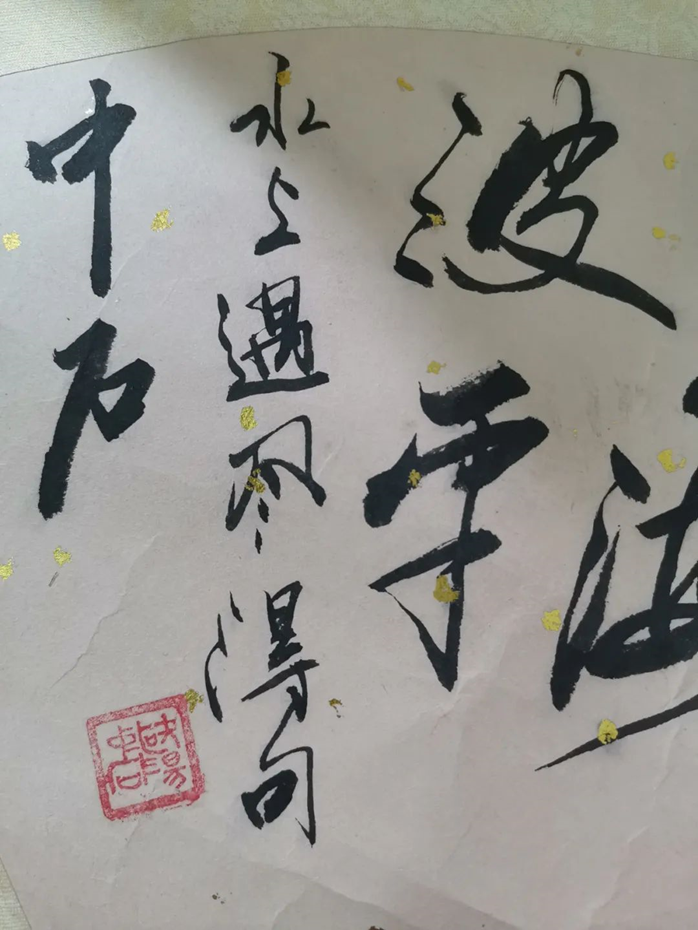 海
波平
水上遇風得句
中石